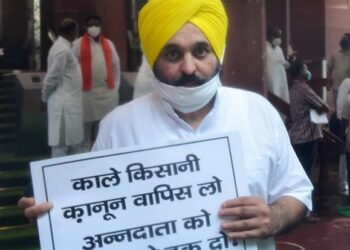 काले किसानी
क़ानून वापिस लो
अन्नदाता को
दो